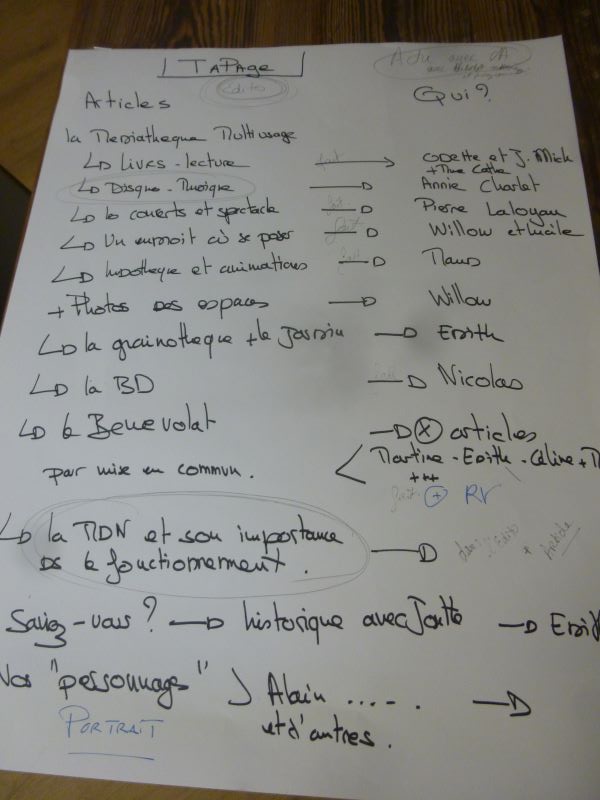 TaPage
Edito
Adu avec
Articles
Qui?
la Mediathèque Multiusage
↳ Livres - lecture fait → Odette et J. Mick
+ Time Cathe
↳ Disque - Musique → Annie Charlet
↳ le concerts et spectacle fait → Pierre Laloyau
↳ Un endroit où se poser fait → Willow et Lucile
↳ ludothèque et animations fait → Maud
+ Photos des espaces → Willow
↳ la grainothèque + le Jardin → Edith
↳ la BD fait → Nicolas
↳ le Benevolat → X articles
par mise en commun. < Martine - Edith - Céline +
+++
fait + RV
↳ la MDN et son importance
ds le fonctionnement. → dans l'Edito + Article
Saviez-vous? → historique avec Josette → Edith
Nos "personnages" ) Alain ..... →
et d'autres.
PORTRAIT